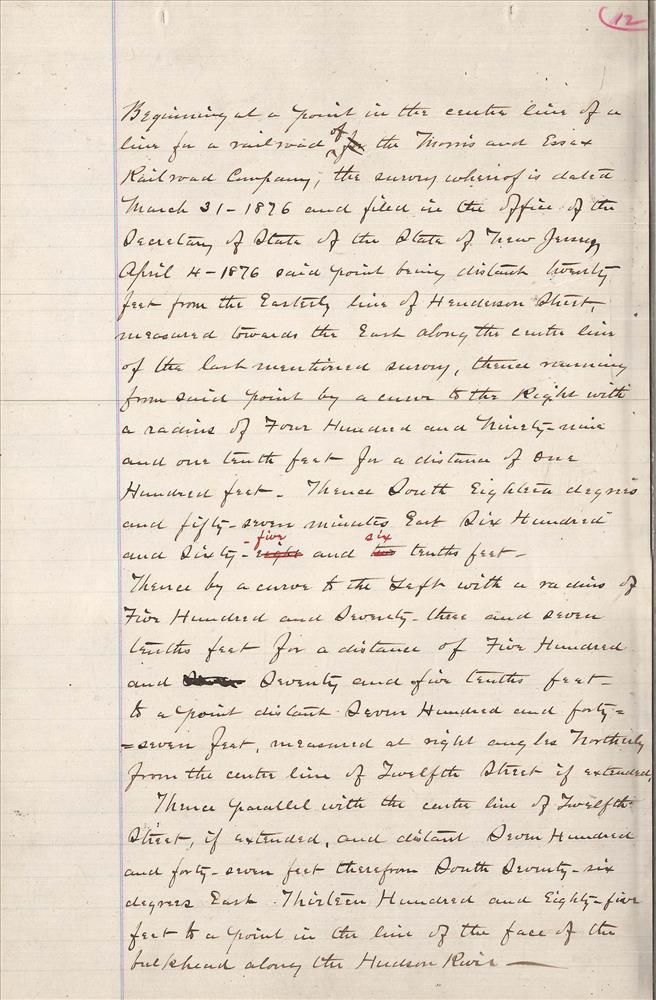 12
Beginning at a point in the centre line of a
line for a railroad of for the Morris and Essex
Railroad Company, the survey whereof is dated
March 31-1876 and filed in the office of the
Secretary of State of the State of New Jersey
April 4-1876 said point being distant twenty
feet from the Easterly line of Henderson Street,
measured towards the East along the centre line
of the last mentioned survey, thence running
from said point by a curve to the Right with
a radius of Four Hundred and Ninety-nine
and one tenth feet for a distance of One
Hundred feet - Thence South Eighteen degrees
and fifty-seven minutes East Six Hundred
and Sixty-eight five and two six tenths feet -
Thence by a curve to the Left with a radius of
Five Hundred and Seventy-three and seven
tenths feet for a distance of Five Hundred
and Seventy and five tenths feet
to a point distant Seven Hundred and forty=
=seven feet, measured at right angles Northerly
from the centre line of Twelfth Street if extended,
Thence parallel with the centre line of Twelfth
Street, if extended, and distant Seven Hundred
and forty-seven feet therefrom South Seventy-six
degrees East Thirteen Hundred and Eighty-five
feet to a point in the line of the face of the
bulkhead along the Hudson River —